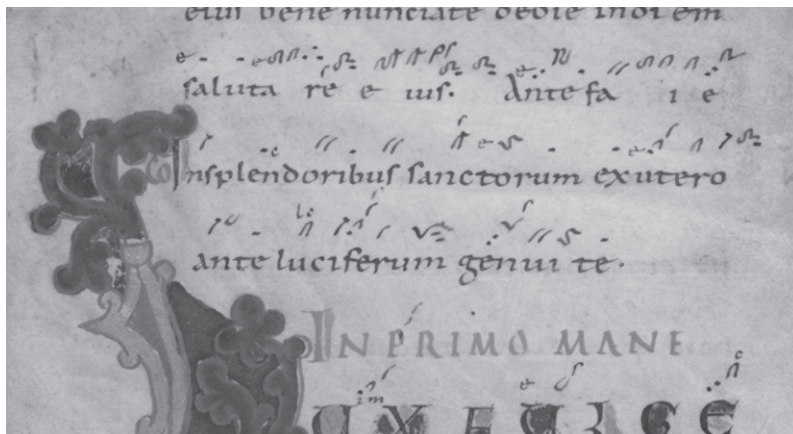 eius bene nunciate dedie indi em
saluta re e ius. Ante fa i e
Co In splendoribus sanctorum ex utero
ante luciferum genui te.
IN PRIMO MANE
LUX FULGE